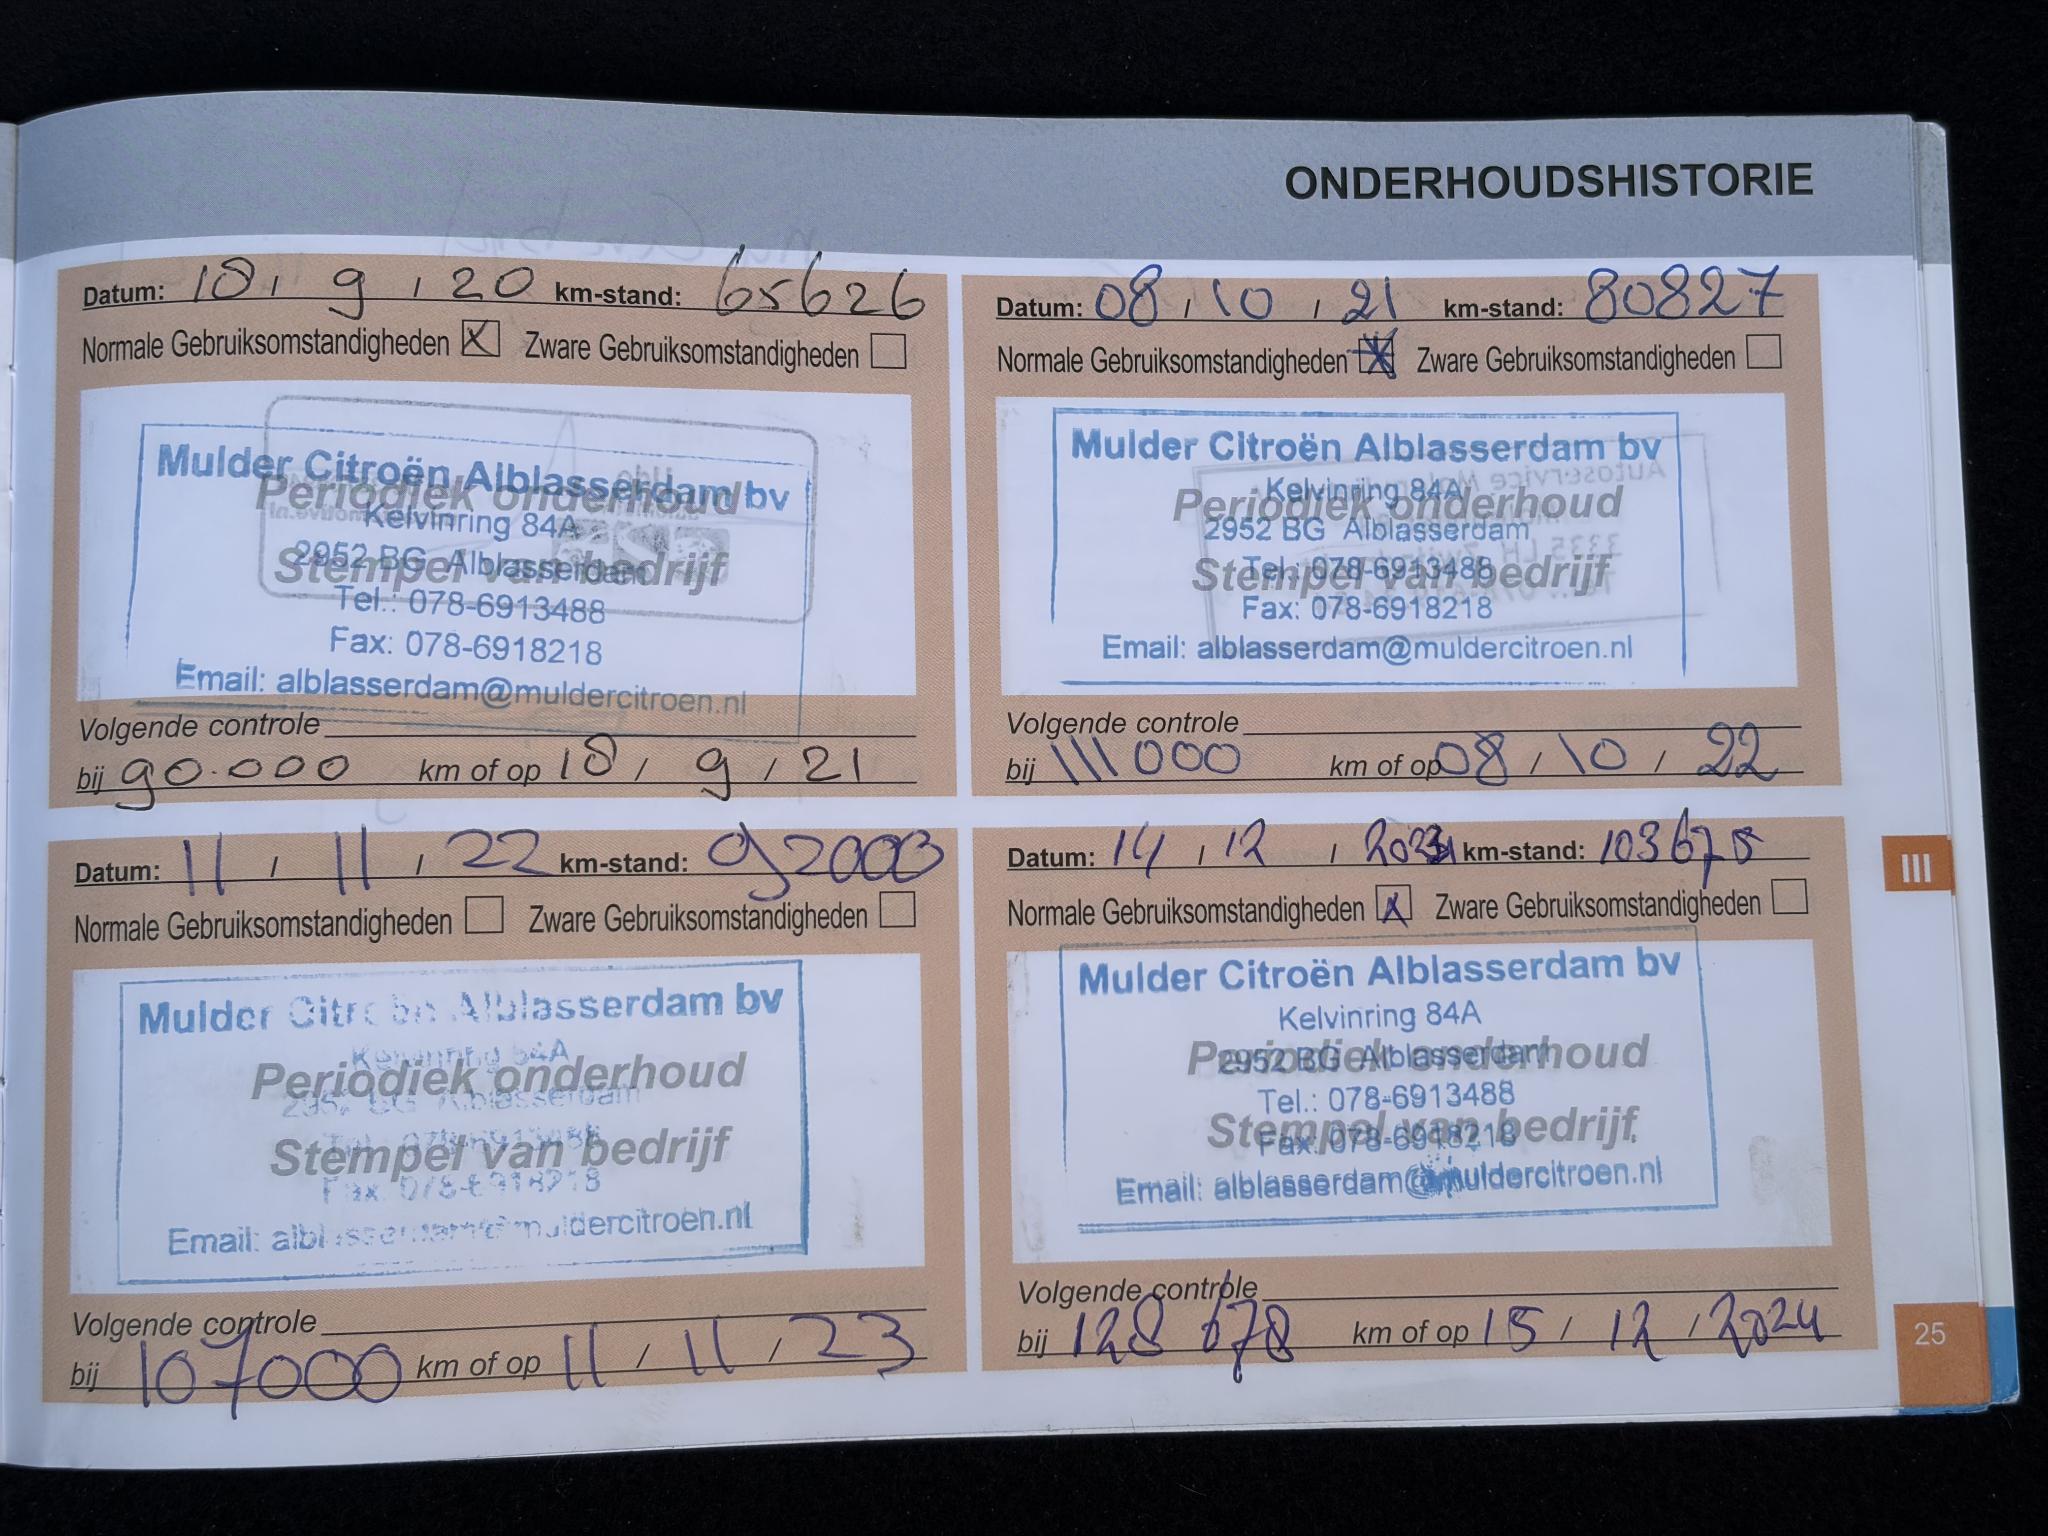 ONDERHOUDSHISTORIE
Datum: 18 / 9 / 20 km-stand: 65626
Normale Gebruiksomstandigheden X Zware Gebruiksomstandigheden
Mulder Citroën Alblasserdam bv
Periodiek onderhoud
Kelvinring 84A
2952 BG Alblasserdam
Stempel van bedrijf
Tel.: 078-6913488
Fax: 078-6918218
Email: alblasserdam@muldercitroen.nl
Volgende controle
bij 90.000 km of op 18 / 9 / 21
Datum: 08 / 10 / 21 km-stand: 80827
Normale Gebruiksomstandigheden X Zware Gebruiksomstandigheden
Mulder Citroën Alblasserdam bv
Kelvinring 84A
Periodiek onderhoud
2952 BG Alblasserdam
Tel.: 078-6913488
Stempel van bedrijf
Fax: 078-6918218
Email: alblasserdam@muldercitroen.nl
Volgende controle
bij 111000 km of op 08 / 10 / 22
Datum: 11 / 11 / 22 km-stand: 92003
Normale Gebruiksomstandigheden Zware Gebruiksomstandigheden
Mulder Citroën Alblasserdam bv
Kelvinring 84A
Periodiek onderhoud
2952 BG Alblasserdam
Tel.: 078-6913488
Stempel van bedrijf
Fax: 078-6918218
Email: alblasserdam@muldercitroen.nl
Volgende controle
bij 107000 km of op 11 / 11 / 23
Datum: 14 / 12 / km-stand: 103678
Normale Gebruiksomstandigheden X Zware Gebruiksomstandigheden
Mulder Citroën Alblasserdam bv
Kelvinring 84A
Periodiek onderhoud
2952 BG Alblasserdam
Tel.: 078-6913488
Stempel van bedrijf
Fax: 078-6918218
Email: alblasserdam@muldercitroen.nl
Volgende controle
bij 128 678 km of op 15 / 12 / 2024
III
25